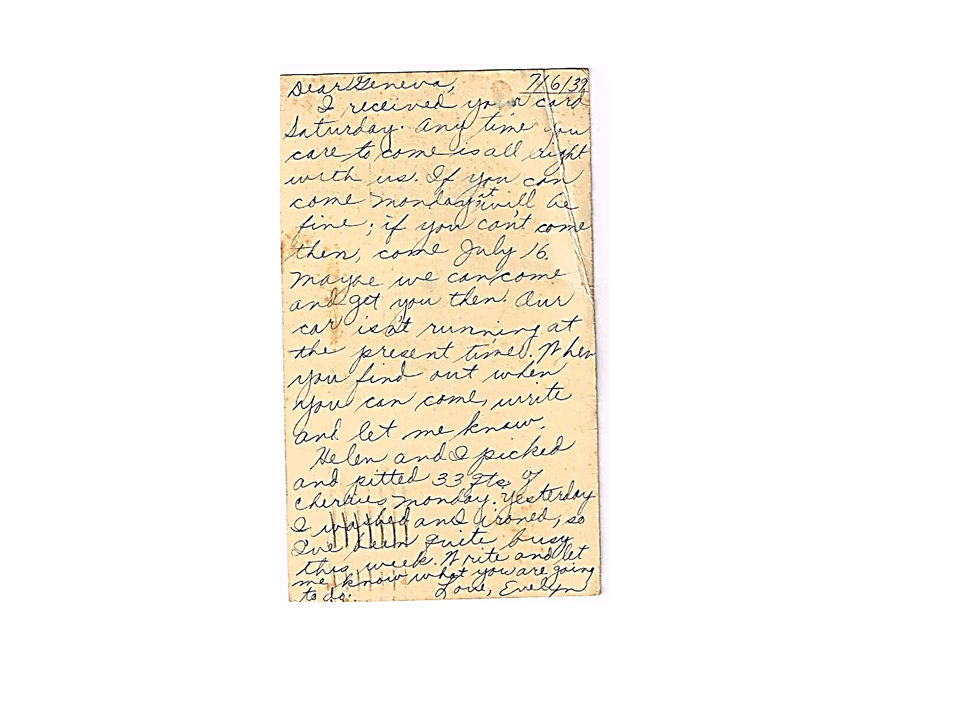 7/6/39
Dear Geneva,
I received your card
Saturday. Any time you
care to come is all right
with us. If you can
come Monday it will be
fine; if you can't come
then, come July 16.
Maybe we can come
and get you then. Our
car isn't running at
the present time. When
you find out when
you can come, write
and let me know.
Helen and I picked
and pitted 33 qts. of
cherries Monday. Yesterday
I washed and ironed, so
I've been quite busy
this week. Write and let
me know what you are going
to do. Love, Evelyn